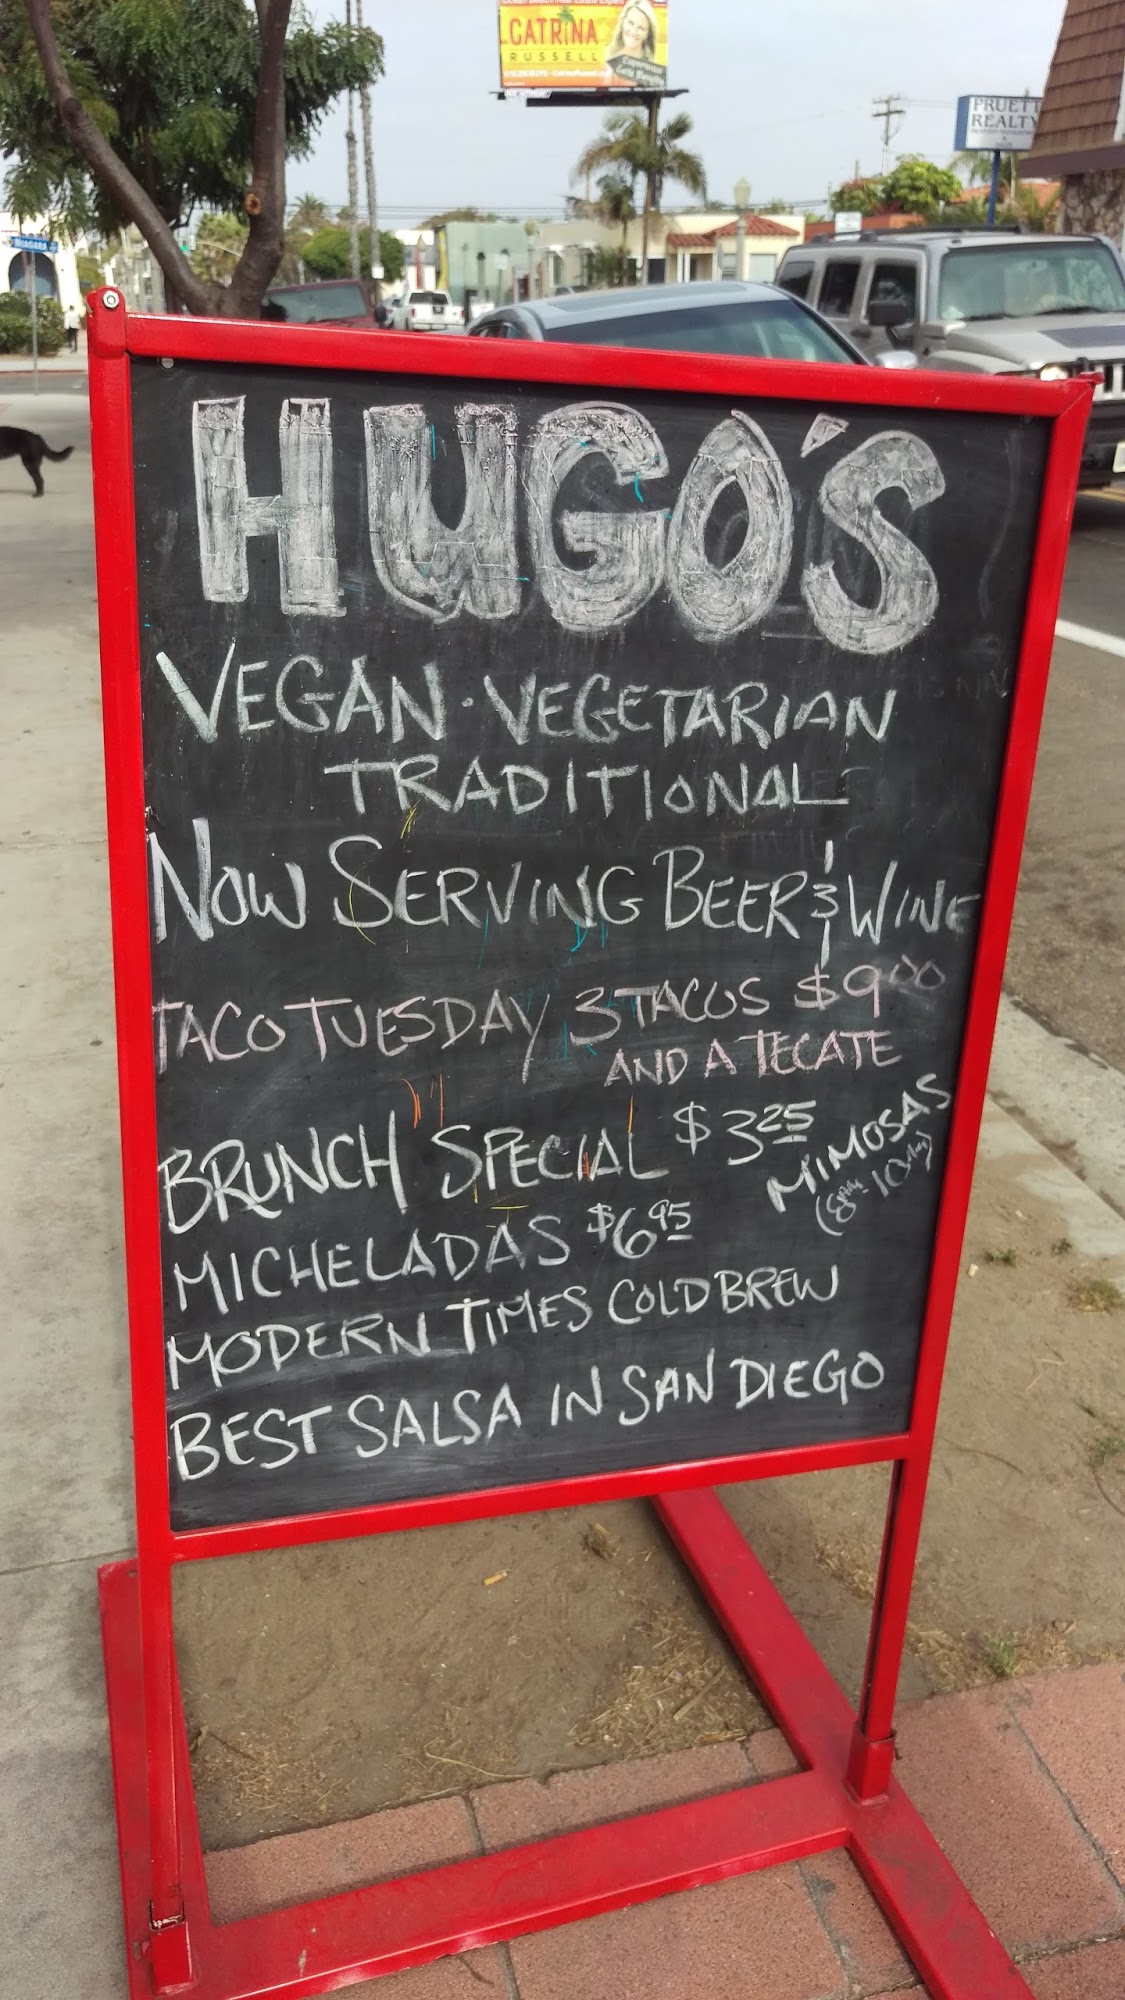 CATRINA
RUSSELL
PRUETT
REALTY
NIAGARA
HUGO'S
VEGAN · VEGETARIAN
TRADITIONAL
NOW SERVING BEER & WINE
TACO TUESDAY 3 TACOS $9.00
AND A TECATE
BRUNCH SPECIAL $3.25
MIMOSAS
MICHELADAS $6.95
MODERN TIMES COLD BREW
BEST SALSA IN SAN DIEGO